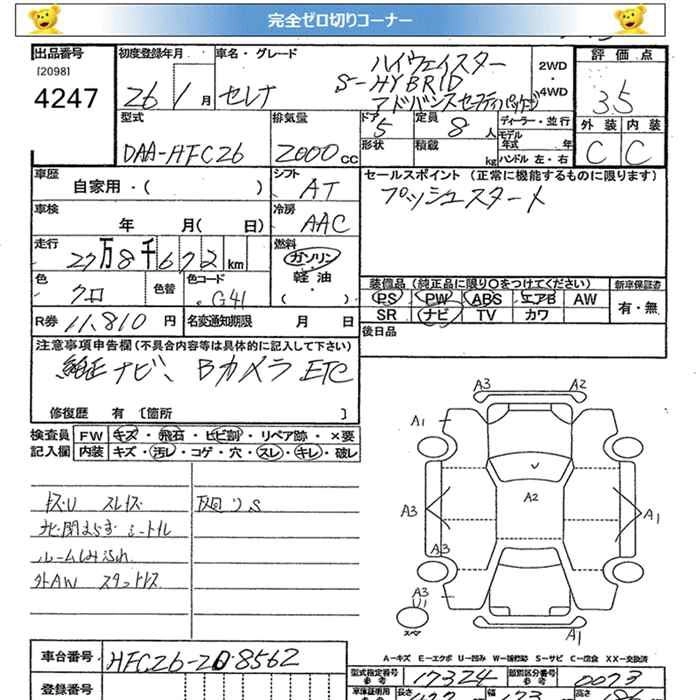 完全ゼロ切りコーナー
出品番号
[2098]
4247
初度登録年月
26 / 1 月
車名・グレード
セレナ
ハイウェイスター
S-HYBRID
アドバンスセーフティパッケージ
2WD
・
4WD
評価点
3.5
外装 内装
C C
型式
DAA-HFC26
排気量
2000 cc
ドア
5
定員
8 人
ディーラー・並行
モデル
年式 年
形状
積載
kg
ハンドル 左・右
車歴
自家用・( )
シフト
AT
セールスポイント (正常に機能するものに限ります)
プッシュスタート
車検
年 月( 日)
冷房
AAC
走行
27万8千672 km
燃料
ガソリン
・
軽油
( )
色
クロ
色替
色コード
G41
装備品 (純正品に限り○をつけてください)
新車保証書
PS PW ABS エアB AW
SR ナビ TV カワ
有・無
R券 11,810 円
名変通知期限 月 日
後日品
注意事項申告欄 (不具合内容等は具体的に記入して下さい)
純正ナビ、Bカメラ ETC
修復歴 有 [箇所 ]
検査員
記入欄
FW キズ・飛石・ヒビ割・リペア跡・×要
内装 キズ・汚レ・コゲ・穴・スレ・キレ・破レ
キズU スレキズ
ルームしみ汚れ
外AW スタットレス
A3 A2
A1
A2
A3 A1
A3
A3
U1
スペア
A1
A-キズ E-エクボ U-凹み W-補修跡 S-サビ C-腐食 XX-交換済
車台番号
HFC26-208562
型式指定番号
参考
17324
類別区分番号
参考
0073
登録番号
車庫証明用
長さ
幅
高さ